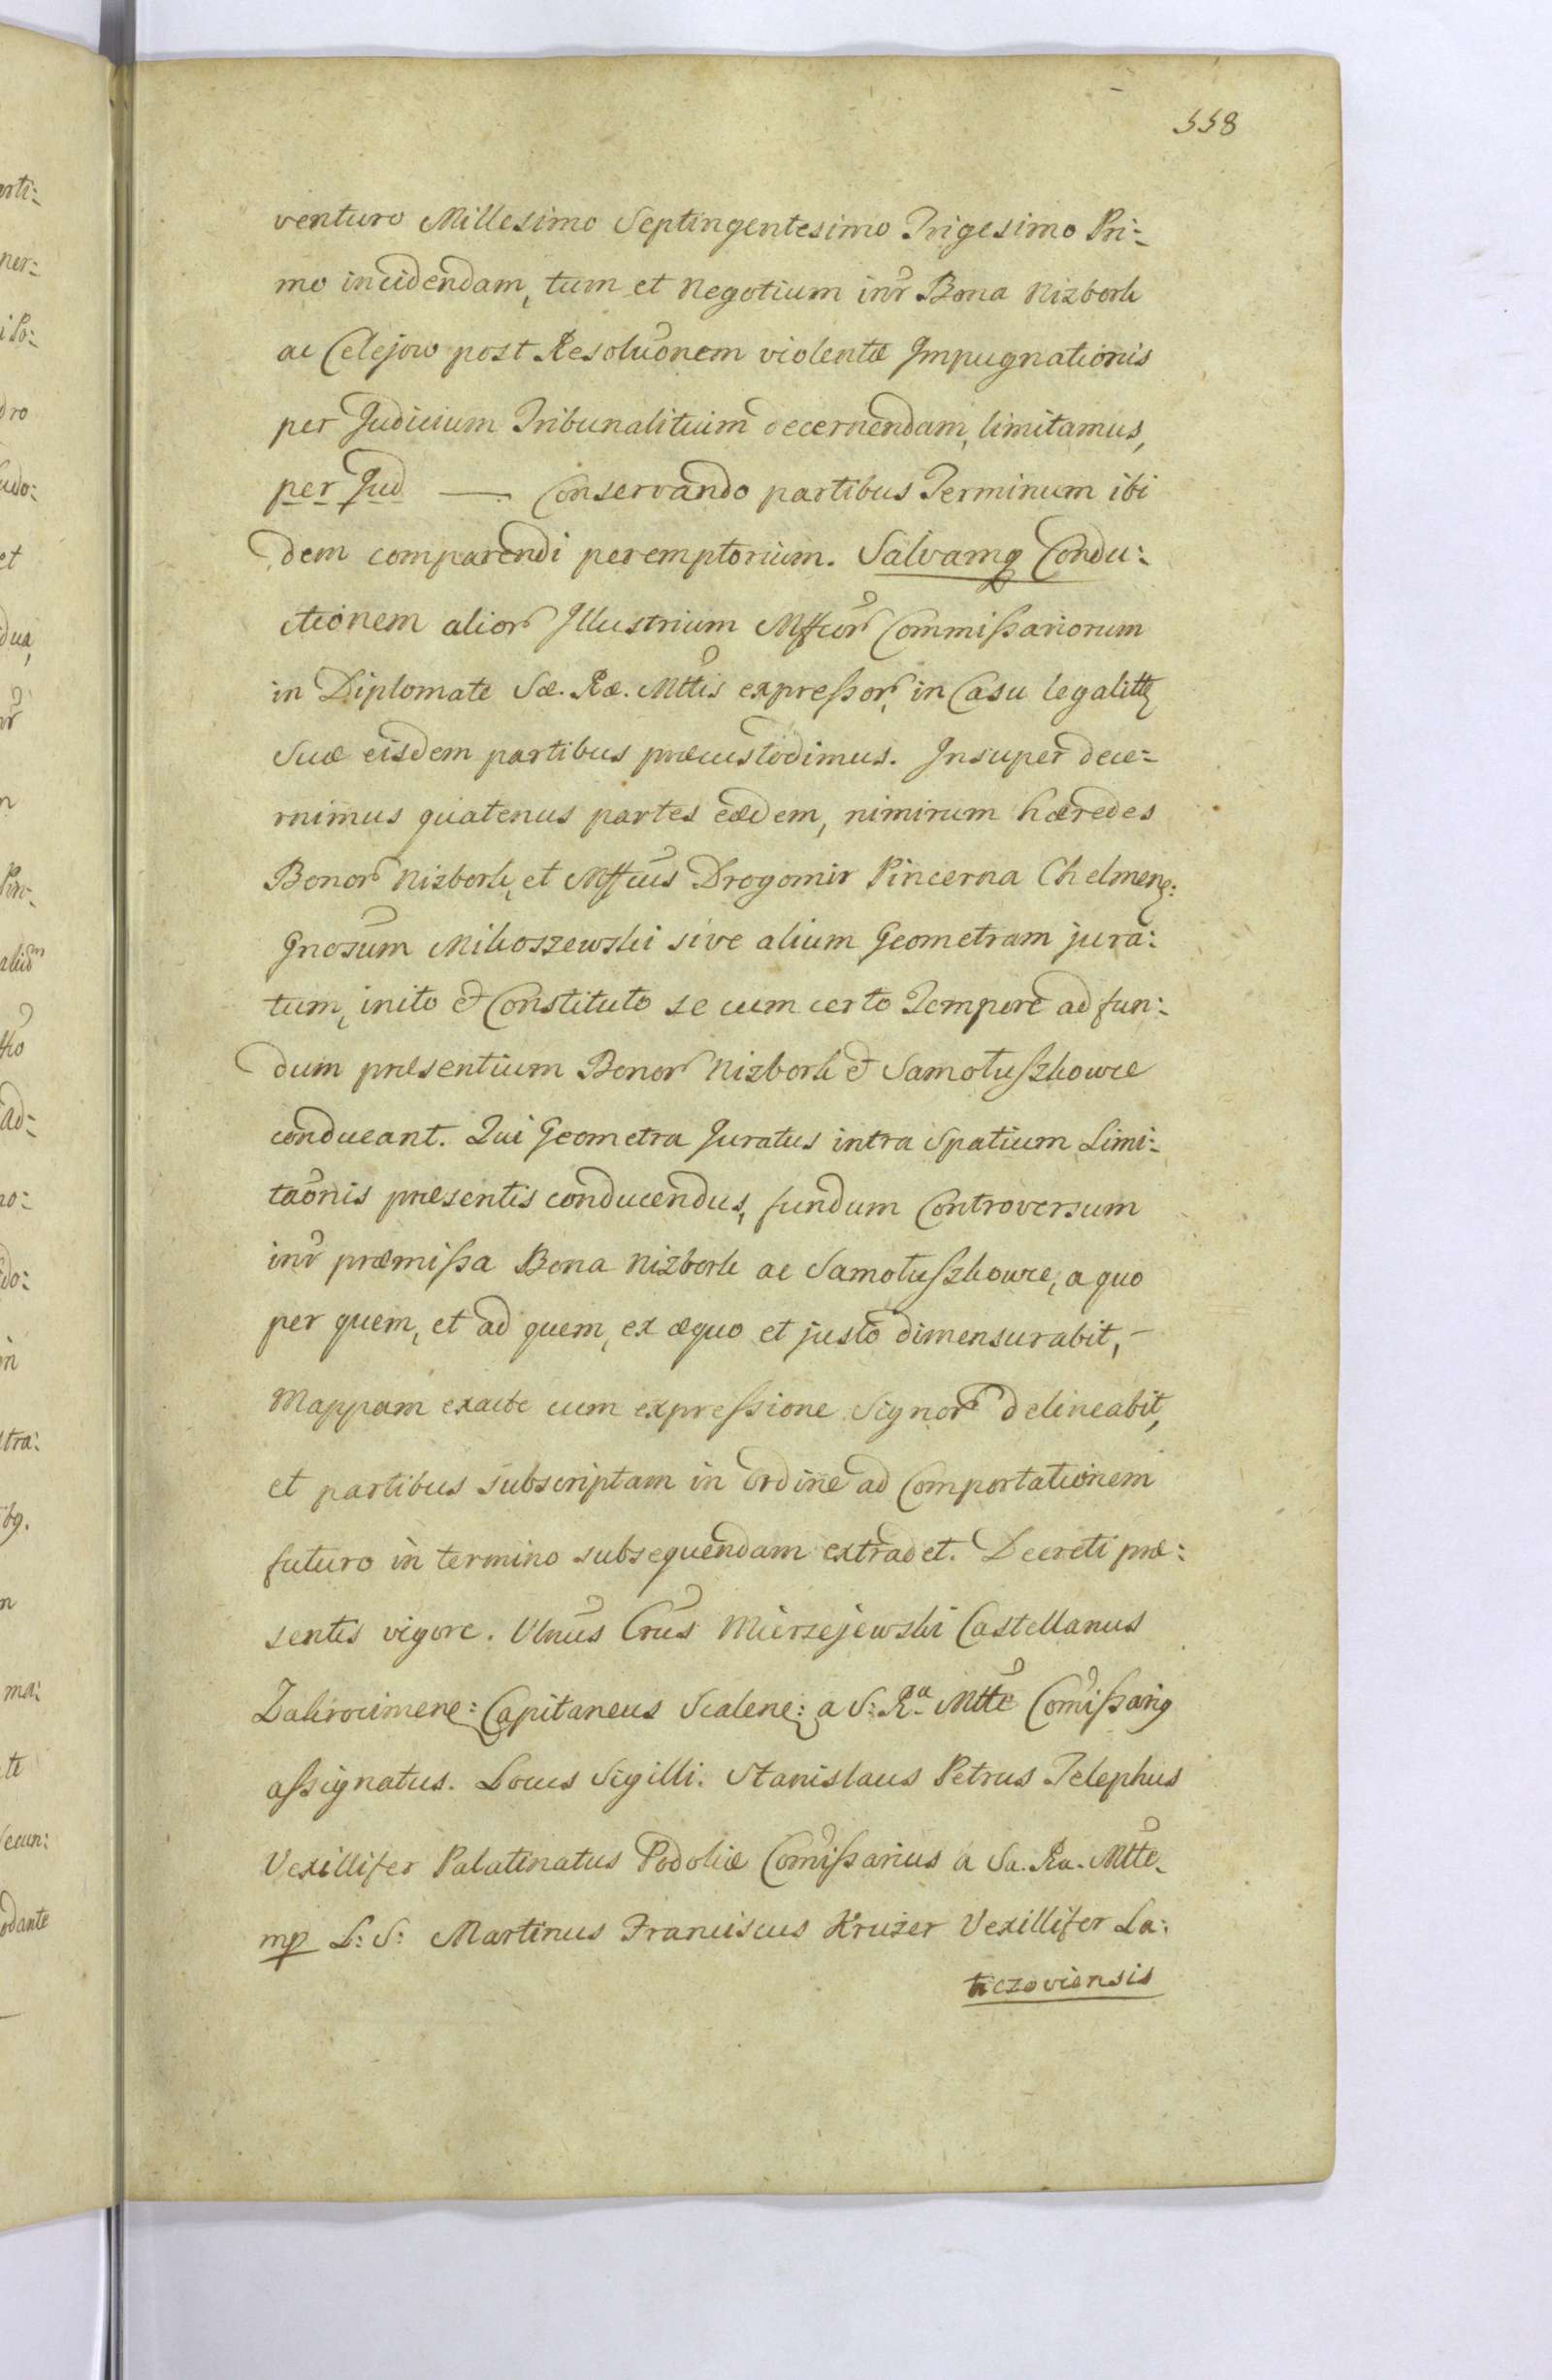 558
venturo Millesimo Septingentesimo Trigesimo Pri:
mo incidendam, tum et Negotium intr Bona Nizbork
ac Celejow post Resoluonem violentæ Impugnationis
per Judicium Tribunalitium decernendam, limitamus,
per Jud — Conservando partibus Terminum ibi
dem comparendi peremptorium. Salvamq Condu:
ctionem alior Illustrium Mffcor Commissariorum
in Diplomate Sæ. Ræ. Mttis expressor, in Casu legalitt
Suæ eisdem partibus præcustodimus. Insuper dece:
rnimus quatenus partes eædem, nimirum hæredes
Bonor Nizbork, et Mffcus Drogomir Pincerna Chelmen:
Gnosum Mikoszewski sive alium Geometram jura:
tum, inito et Constituto se cum certo Tempore ad fun:
dum præsentium Bonor Nizbork et Samotuszkowce
conducant. Qui Geometra Juratus intra Spatium Limi:
taonis præsentis conducendus, fundum Controversum
intr præmissa Bona Nizbork ac Samotuszkowce, a quo
per quem, et ad quem, ex æquo et justo dimensurabit, –
Mappam exacte cum expressione Signor delineabit,
et partibus subscriptam in ordine ad Comportationem
futuro in termino subsequendam extradet. Decreti præ:
sentis vigore. Ulrius Crus Mierzejewski Castellanus
Zakrocimene: Capitaneus Scalene: a S: Rª Mtte Comissariq
assignatus. Locus Sigilli. Stanislaus Petrus Telephus
Vexillifer Palatinatus Podoliæ Comissarius a Sa. Ra. Mtte.
mp L: S: Martinus Franciscus Kruzer Vexillifer La:
tczoviensis
arti:
ner:
dro
udo:
et
dua,
n
ad:
no:
do:
in
tra:
bq.
n
ma:
te
secun:
odante